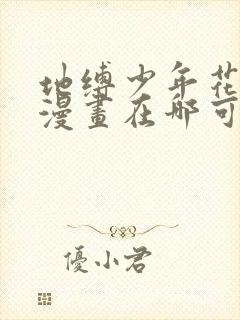 地缚少年花
漫畫在哪可
優小君